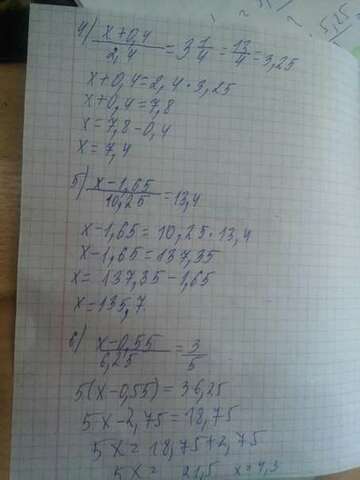 4) x+0,4 / 2,4 = 3 1/4 = 13/4 = 3,25
x+0,4=2,4·3,25
x+0,4=7,8
x=7,8-0,4
x=7,4
5) x-1,65 / 10,25 = 13,4
x-1,65=10,25·13,4
x-1,65=137,35
x=137,35-1,65
x=135,7
6) x-0,55 / 6,25 = 3/5
5(x-0,55)=36,25
5x-2,75=18,75
5x=18,75+2,75
5x=21,5 x=4,3